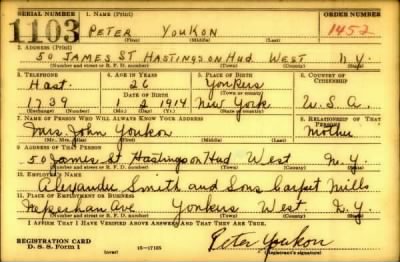 SERIAL NUMBER 1. NAME (Print) ORDER NUMBER
1103 PETER YOUKON 1452
(First) (Middle) (Last)
2. ADDRESS (Print)
50 JAMES ST HASTINGS ON HUD WEST N.Y.
(Number and street or R. F. D. number) (Town) (County) (State)
3. TELEPHONE 4. AGE IN YEARS 5. PLACE OF BIRTH 6. COUNTRY OF CITIZENSHIP
Hast. 26 Yonkers
DATE OF BIRTH (Town or county)
1739 1 2 1914 New York U.S.A.
(Exchange) (Number) (Mo.) (Day) (Yr.) (State or country)
7. NAME OF PERSON WHO WILL ALWAYS KNOW YOUR ADDRESS 8. RELATIONSHIP OF THAT PERSON
Mrs. John Youkon Mother
(Mr., Mrs., Miss) (First) (Middle) (Last)
9. ADDRESS OF THAT PERSON
50 James St Hastings on Hud West N.Y.
(Number and street or R. F. D. number) (Town) (County) (State)
10. EMPLOYER'S NAME
Alexander Smith and Sons Carpet Mills
11. PLACE OF EMPLOYMENT OR BUSINESS
Nepeshan Ave Yonkers West N.Y.
(Number and street or R. F. D. number) (Town) (County) (State)
I AFFIRM THAT I HAVE VERIFIED ABOVE ANSWERS AND THAT THEY ARE TRUE.
REGISTRATION CARD
D. S. S. Form 1 (over) 16-17105 Peter Youkon
(Registrant's signature)